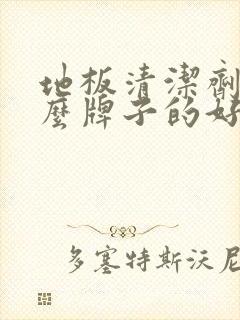 地板清潔劑
麼牌子的好
多塞特斯沃尼